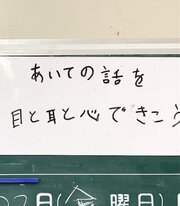 あいての話を
目と耳と心できこう
月(金曜日)